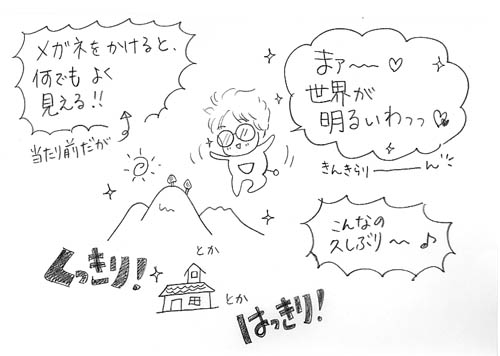 メガネをかけると、
何でもよく
見える!!
当たり前だが
まァ〜〜♡
世界が
明るいわっっ
きんきらりーーーん
こんなの
久しぶり〜♪
くっきり!
とか
とか
はっきり!